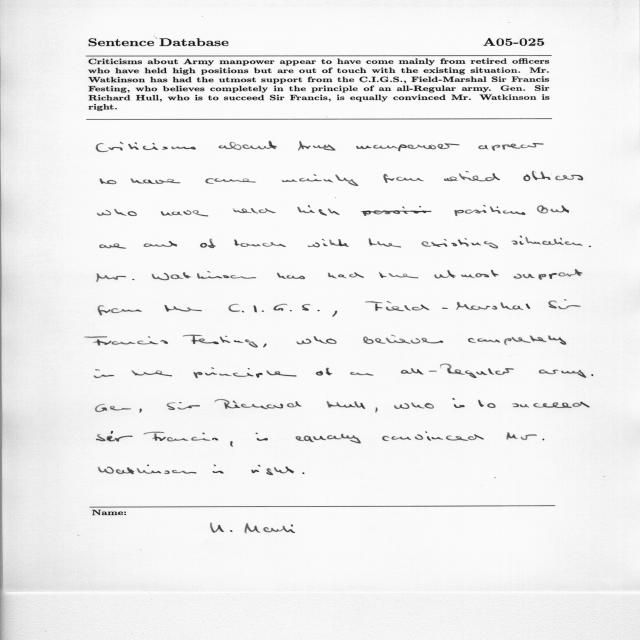 Sentence Database A05-025
Criticisms about Army manpower appear to have come mainly from retired officers
who have held high positions but are out of touch with the existing situation. Mr.
Watkinson has had the utmost support from the C.I.G.S., Field-Marshal Sir Francis
Festing, who believes completely in the principle of an all-Regular army. Gen. Sir
Richard Hull, who is to succeed Sir Francis, is equally convinced Mr. Watkinson is
right.
Criticisms about Army manpower appear
to have come mainly from retied officers
who have held high positions but
are out of touch with the existing situation.
Mr. Watkinson has had the utmost support
from the C.I.G.S., Field-Marshal Sir
Francis Festing, who believes completely
in the principle of an all-Regular army.
Gen, Sir Richard Hull, who is to succeed
Sir Francis, is equally convinced Mr.
Watkinson is right.
Name: